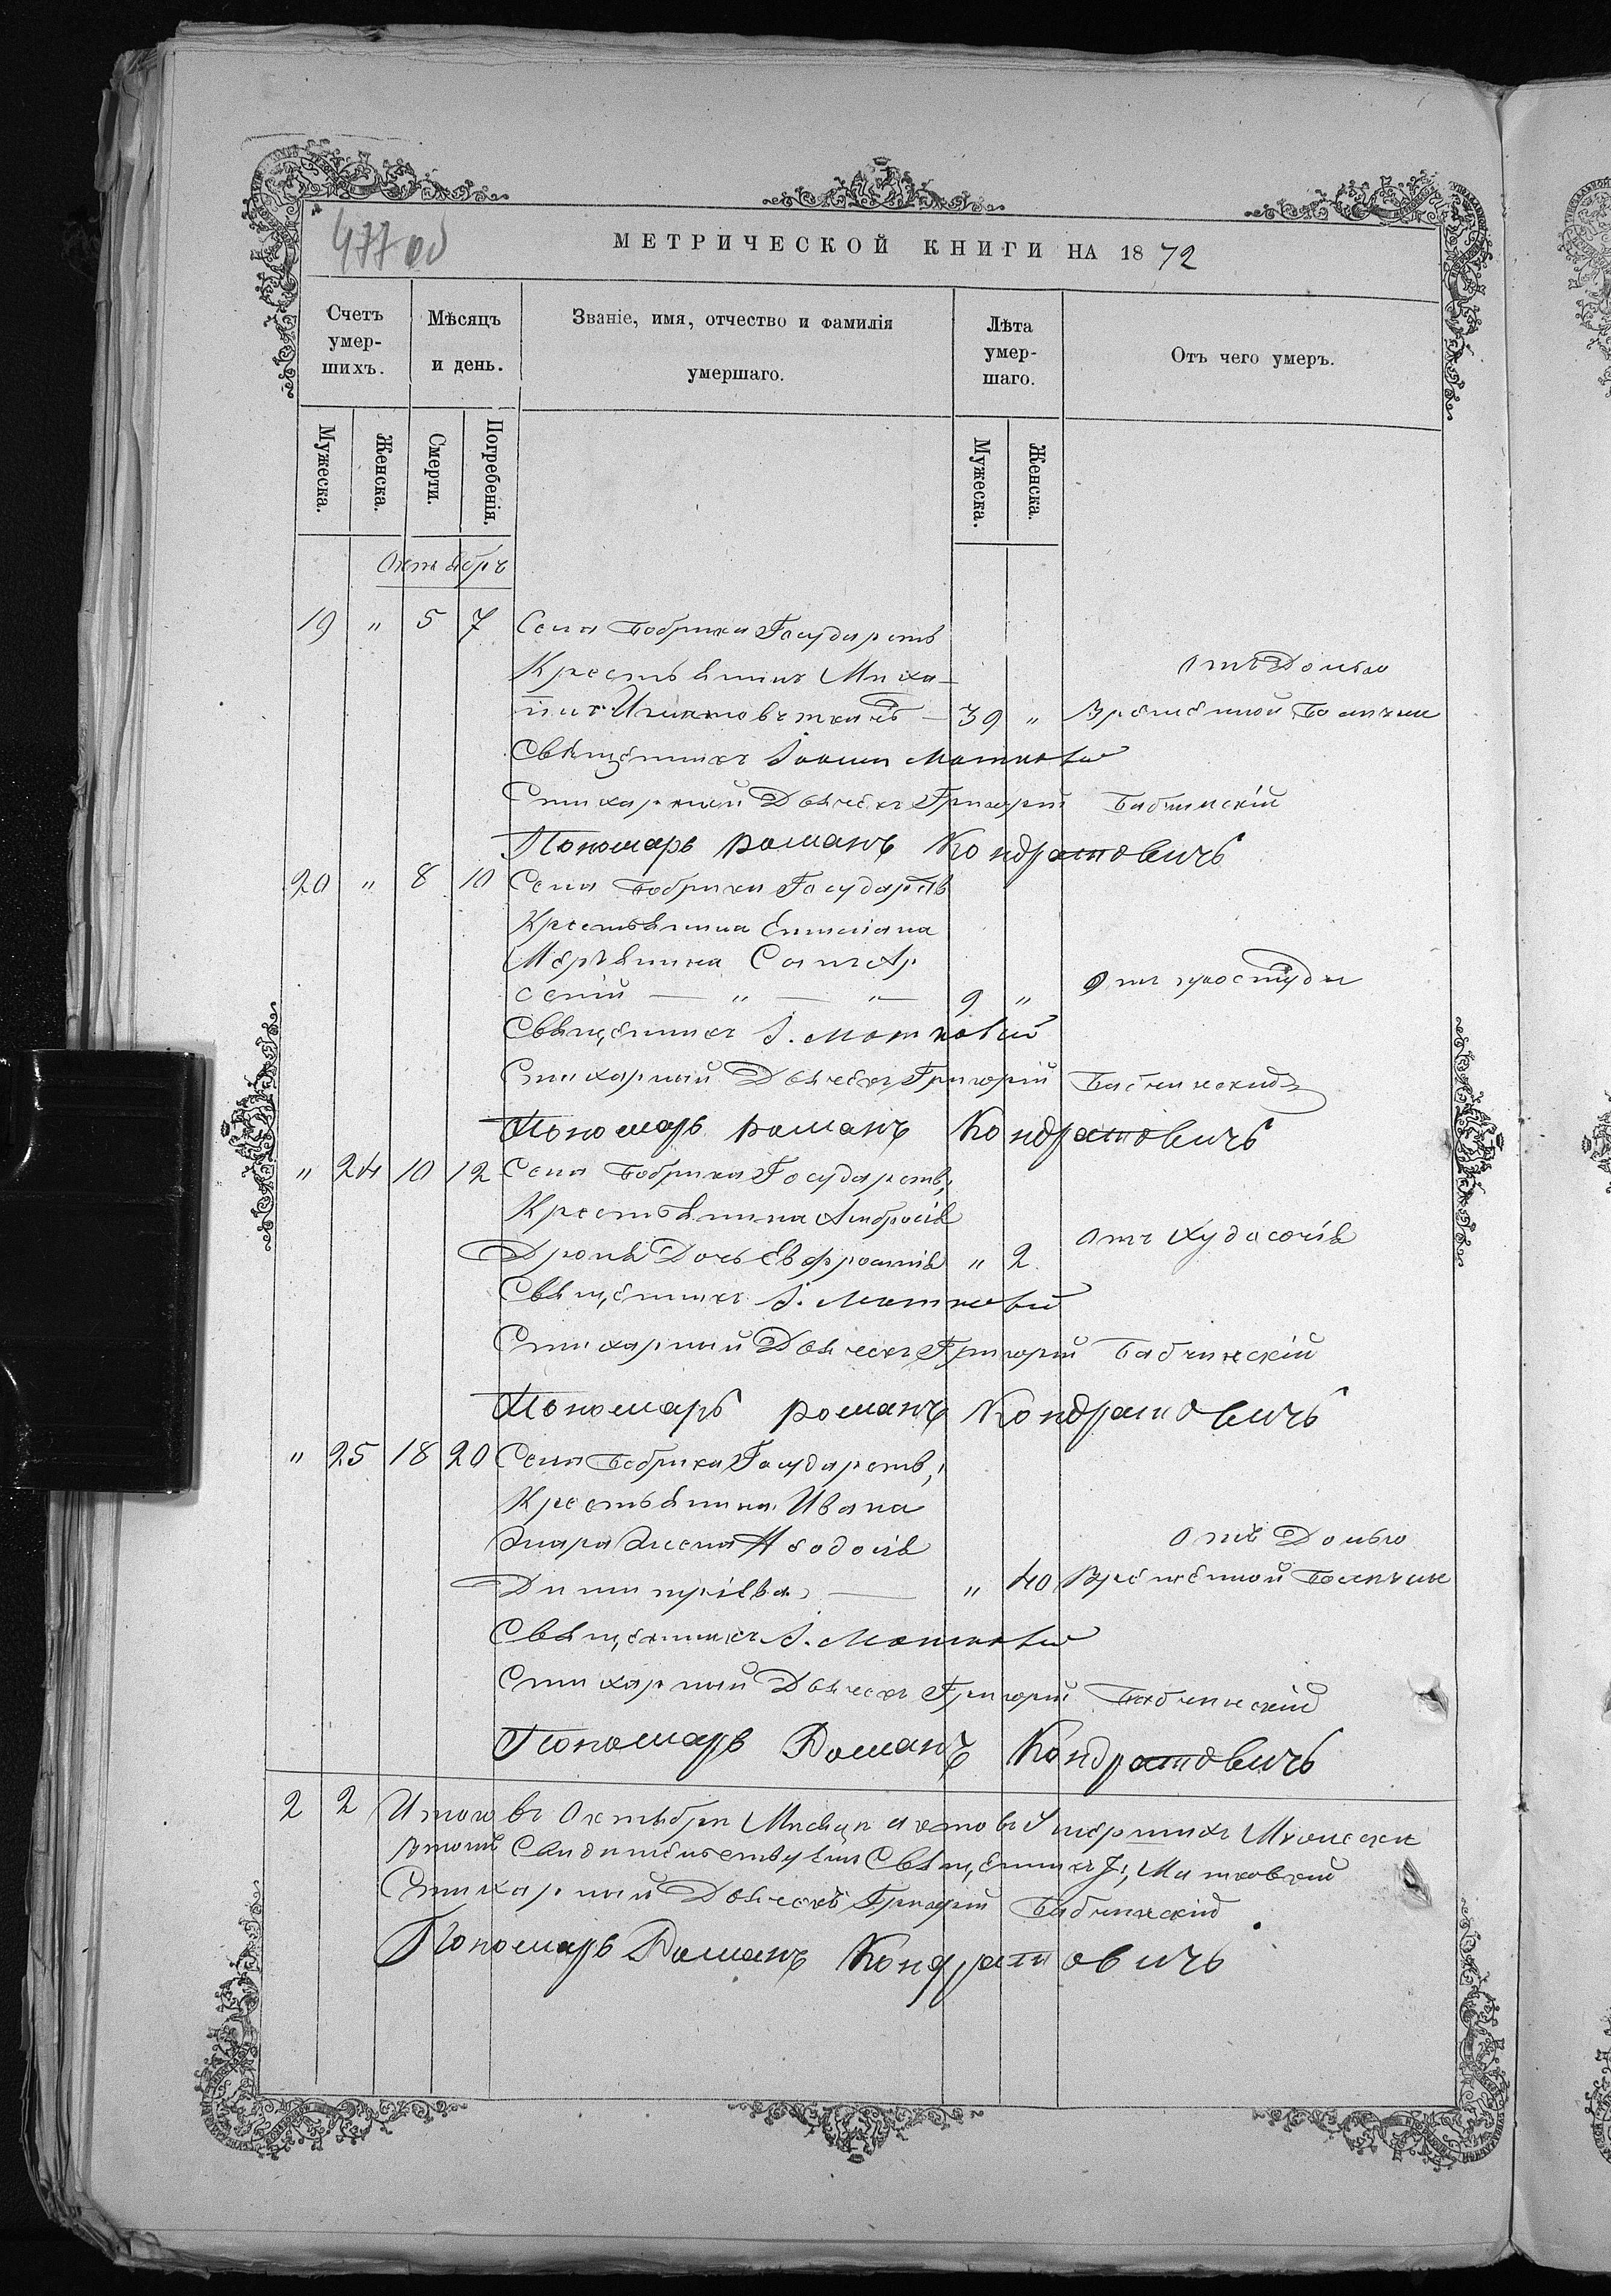 477 об
МЕТРИЧЕСКОЙ КНИГИ НА 1872
Счетъ умер- шихъ.
Мѣсяцъ и день.
Званіе, имя, отчество и фамилія умершаго.
Лѣта умер- шаго.
Отъ чего умеръ.
Мужеска.
Женска.
Смерти.
Погребенія.
Мужеска.
Женска.
Октябрь
19 " 5 7 Села Бобрика Государств
Крестьянинъ Миха- Отъ Долго
илъ — 39 " Временной Болѣзни
Священникъ Іоаннъ Матковскій
Стихарный Дьячекъ Григорій Бабчинскій
Пономарь Романъ Кондратовичъ
20 " 8 10 Села Бобрика Государств
Крестьянина Емиліана
Сынъ Ар
сеній — " — " — 9 " Отъ простуды
Священникъ І. Матковскій
Стихарный Дьячекъ Григорій Бабчинскій
Пономарь Романъ Кондратовичъ
" 24 10 12 Села Бобрика Государств,
Крестьянина Амбросія
Дочь Евфросинія " 2 Отъ Худосочія
Священникъ І. Матковскій
Стихарный Дьячекъ Григорій Бабчинскій
Пономарь Романъ Кондратовичъ
" 25 18 20 Села Бобрика Государств,
Крестьянина Ивана
Жена Ѳеодосія Отъ Долго
Димитріева — " 40 Временной Болѣзни
Священникъ І. Матковскій
Стихарный Дьячекъ Григорій Бабчинскій
Пономарь Романъ Кондратовичъ
2 2 Итого въ Октябри Мѣсяцѣ Умершихъ
Священникъ І. Матковскій
Стихарный Дьячекъ Григорій Бабчинскій
Пономарь Романъ Кондратовичъ